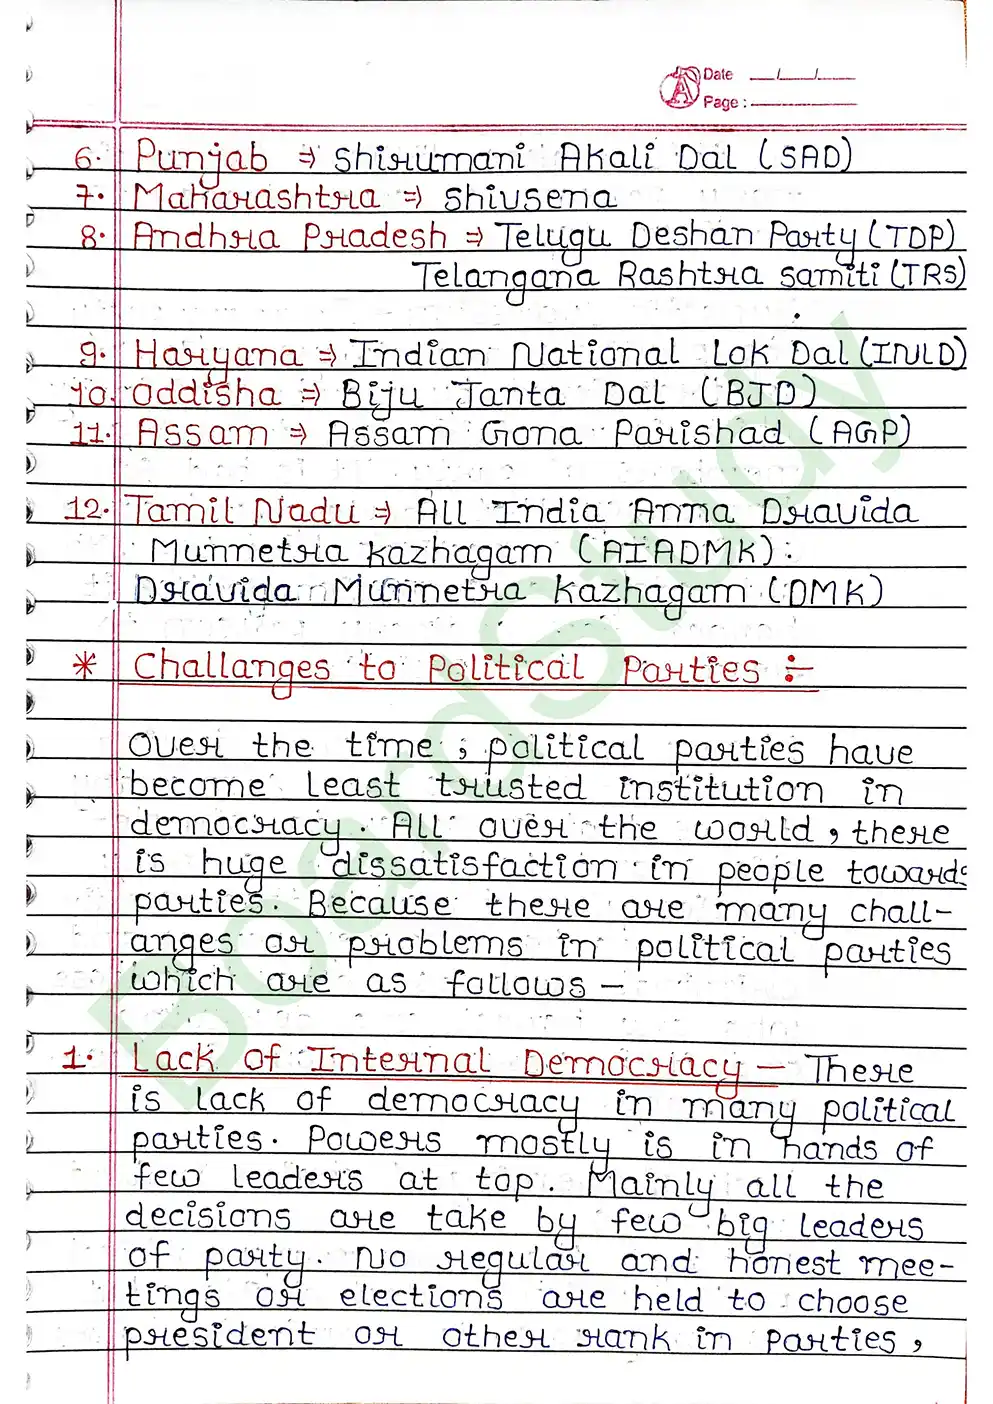 Date __/__/__
Page : ________
6. Punjab ⇒ Shirumani Akali Dal (SAD)
7. Maharashtra ⇒ Shivsena
8. Andhra Pradesh ⇒ Telugu Deshan Party (TDP)
Telangana Rashtra Samiti (TRS)
9. Haryana ⇒ Indian National Lok Dal (INLD)
10. Oddisha ⇒ Biju Janta Dal (BJD)
11. Assam ⇒ Assam Gona Parishad (AGP)
12. Tamil Nadu ⇒ All India Anna Dravida
Munnetra Kazhagam (AIADMK) :
Dravida Munnetra Kazhagam (DMK)
* Challanges to Political Parties :-
Over the time ; political parties have
become least trusted institution in
democracy. All over the world, there
is huge dissatisfaction in people towards
parties. Because there are many chall-
anges or problems in political parties
which are as follows -
1. Lack Of Internal Democracy - There
is lack of democracy in many political
parties. Powers mostly is in hands of
few leaders at top. Mainly all the
decisions are take by few big leaders
of party. No regular and honest mee-
tings or elections are held to choose
president or other rank in parties,
BoardStudy